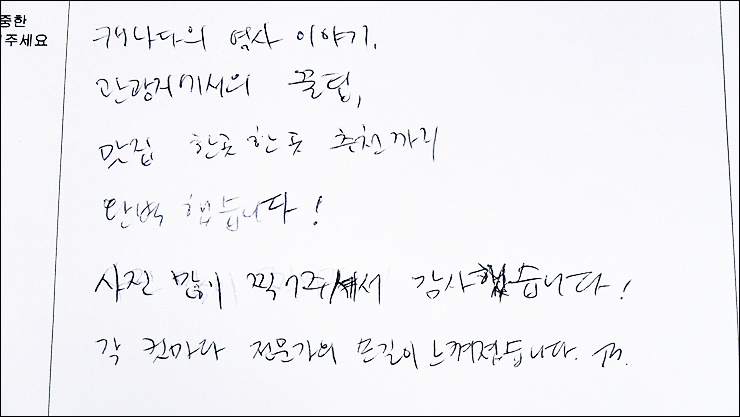 중한
주세요
캐나다의 역사 이야기,
관광지에서의 꿀팁,
맛집 한곳한곳 추천까지
완벽 했습니다!
사진 많이 찍어주셔서 감사했습니다!
각 컷마다 전문가의 손길이 느껴졌습니다.